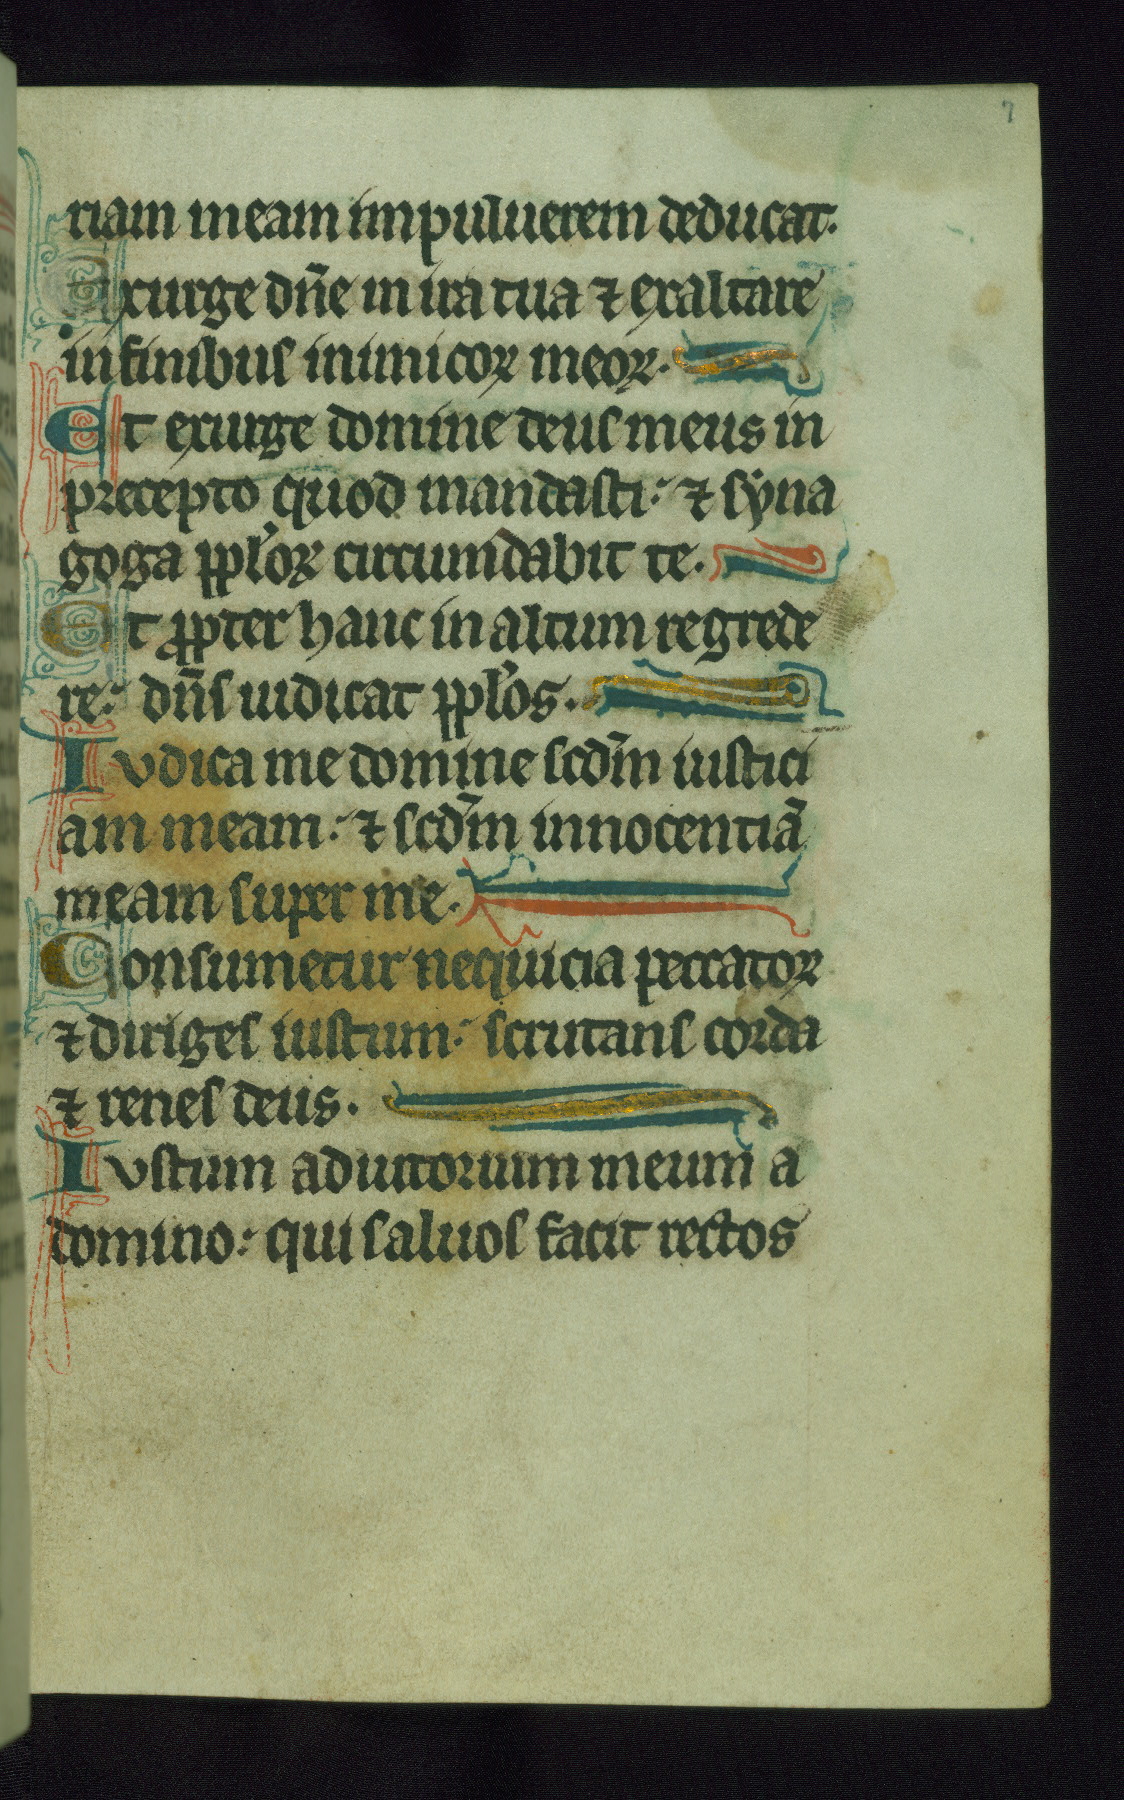 7
riam meam impuluerem deducat.
Exurge dn̄e in ira tua ⁊ exaltare
in finibus inimicoꝝ meoꝝ.
Et exurge domine deus meus in
precepto quod mandasti: ⁊ syna
goga ppl'oꝝ circumdabit te.
Et ꝓpter hanc in altum regrede
re: dn̄s iudicat ppl'os.
Iudica me domine scdm̄ iustici
am meam: ⁊ scdm̄ innocentiā
meam super me.
Consumetur nequicia peccatoꝝ
⁊ diriges iustum: scrutans corda
⁊ renes deus.
Iustum adiutorium meum a
domino: qui saluos facit rectos